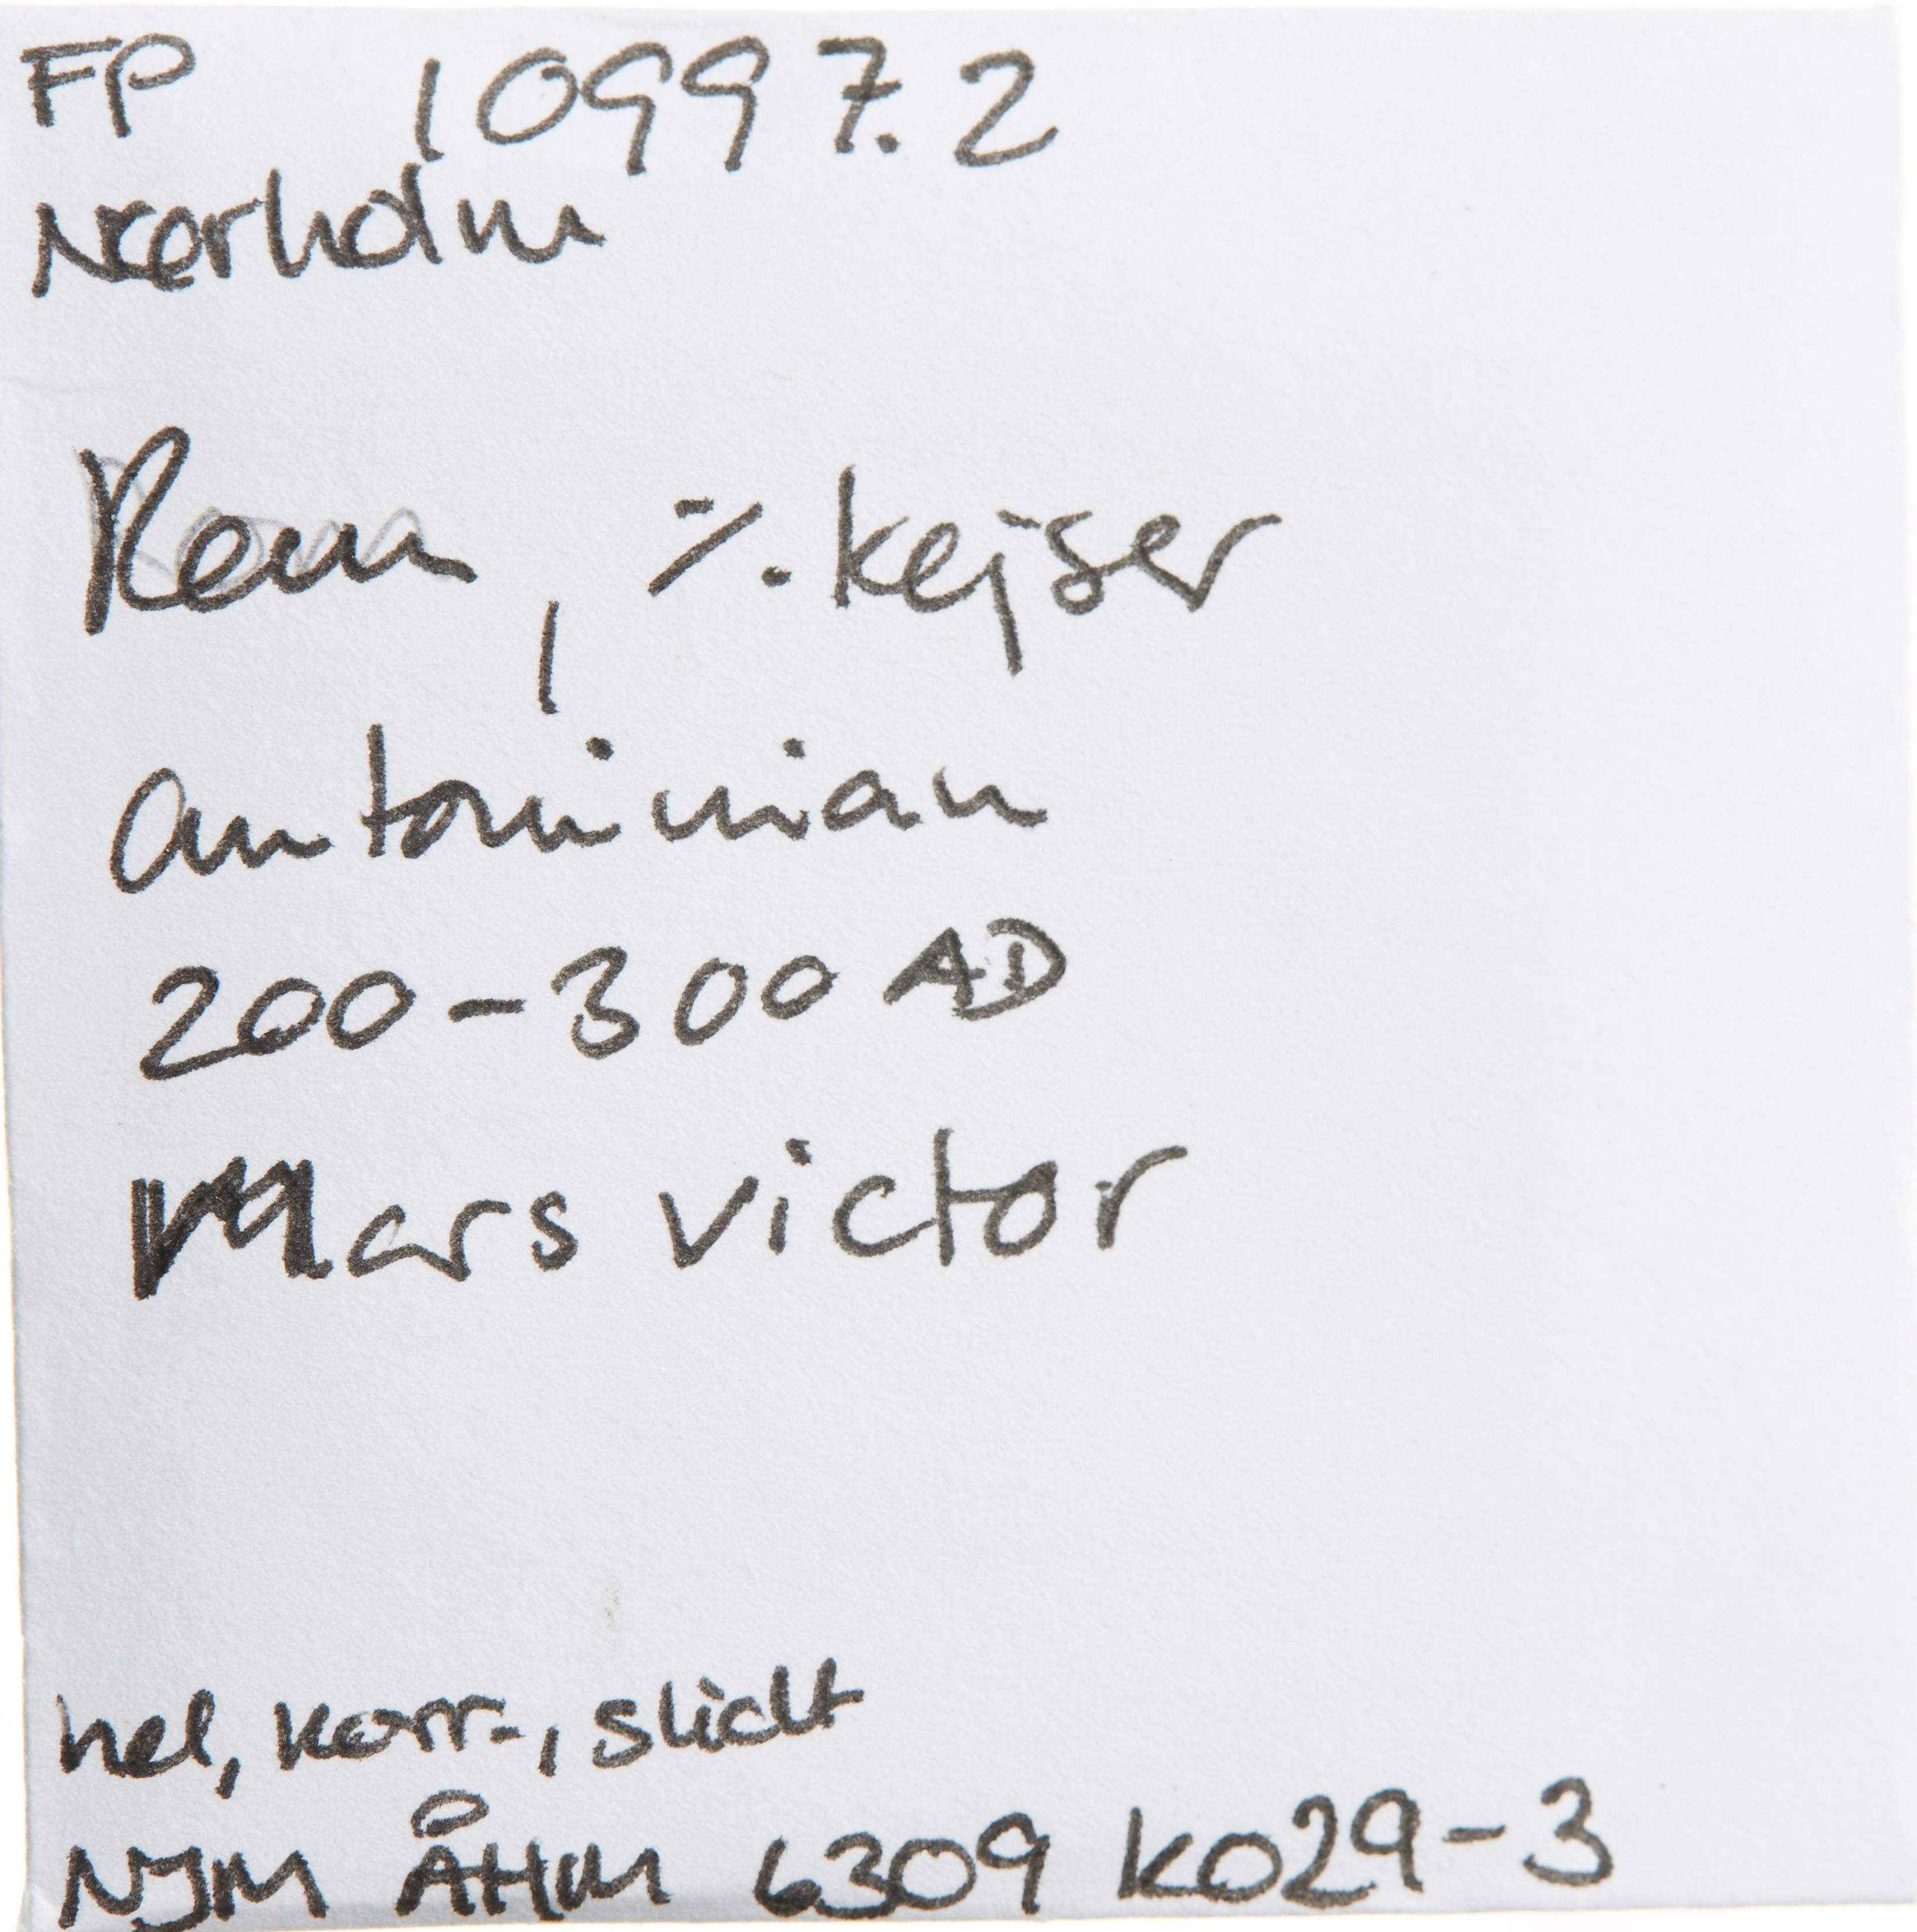 FP 10997.2
Nørholm
Rom, ÷. kejser
antoninian
200-300 AD
Mars victor
hel, korr., slidt
NJM ÅHM 6309 K029-3